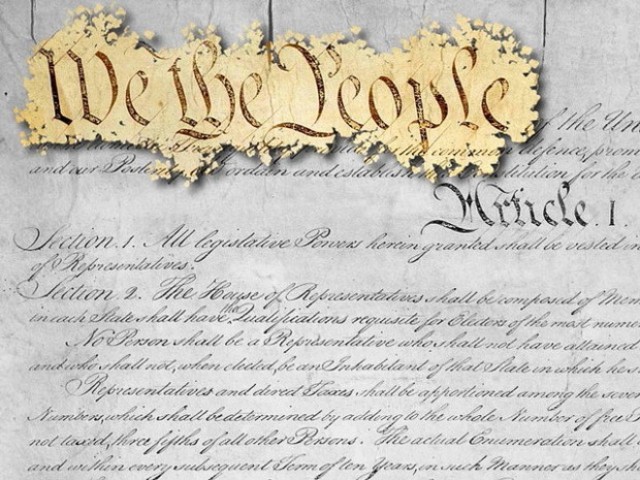 We the People
of the Un
the common defence, prom
and our ordain and establish for the
Article. I.
Section. 1. All legislative Powers herein granted shall be vested in
of Representatives.
Section. 2. The House of Representatives shall be composed of Mem
in each State shall have the Qualifications requisite for Electors of the most nume
No Person shall be a Representative who shall not have attained
and who shall not, when elected, be an Inhabitant of that State in which he s
Representatives and direct Taxes shall be apportioned among the seve
Numbers, which shall be determined by adding to the whole Number of free P
not taxed, three fifths of all other Persons. The actual Enumeration shall
and within every subsequent Term of ten Years, in such Manner as they sh